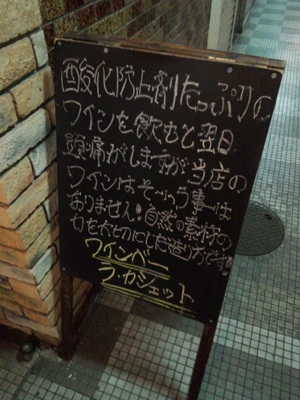 酸化防止剤たっぷりの
ワインを飲むと翌日
頭痛がしますが当店の
ワインはそういう事は
おりません。自然の素材の
力を大切にした造り方です!
ワインバー
ラ・カシェット